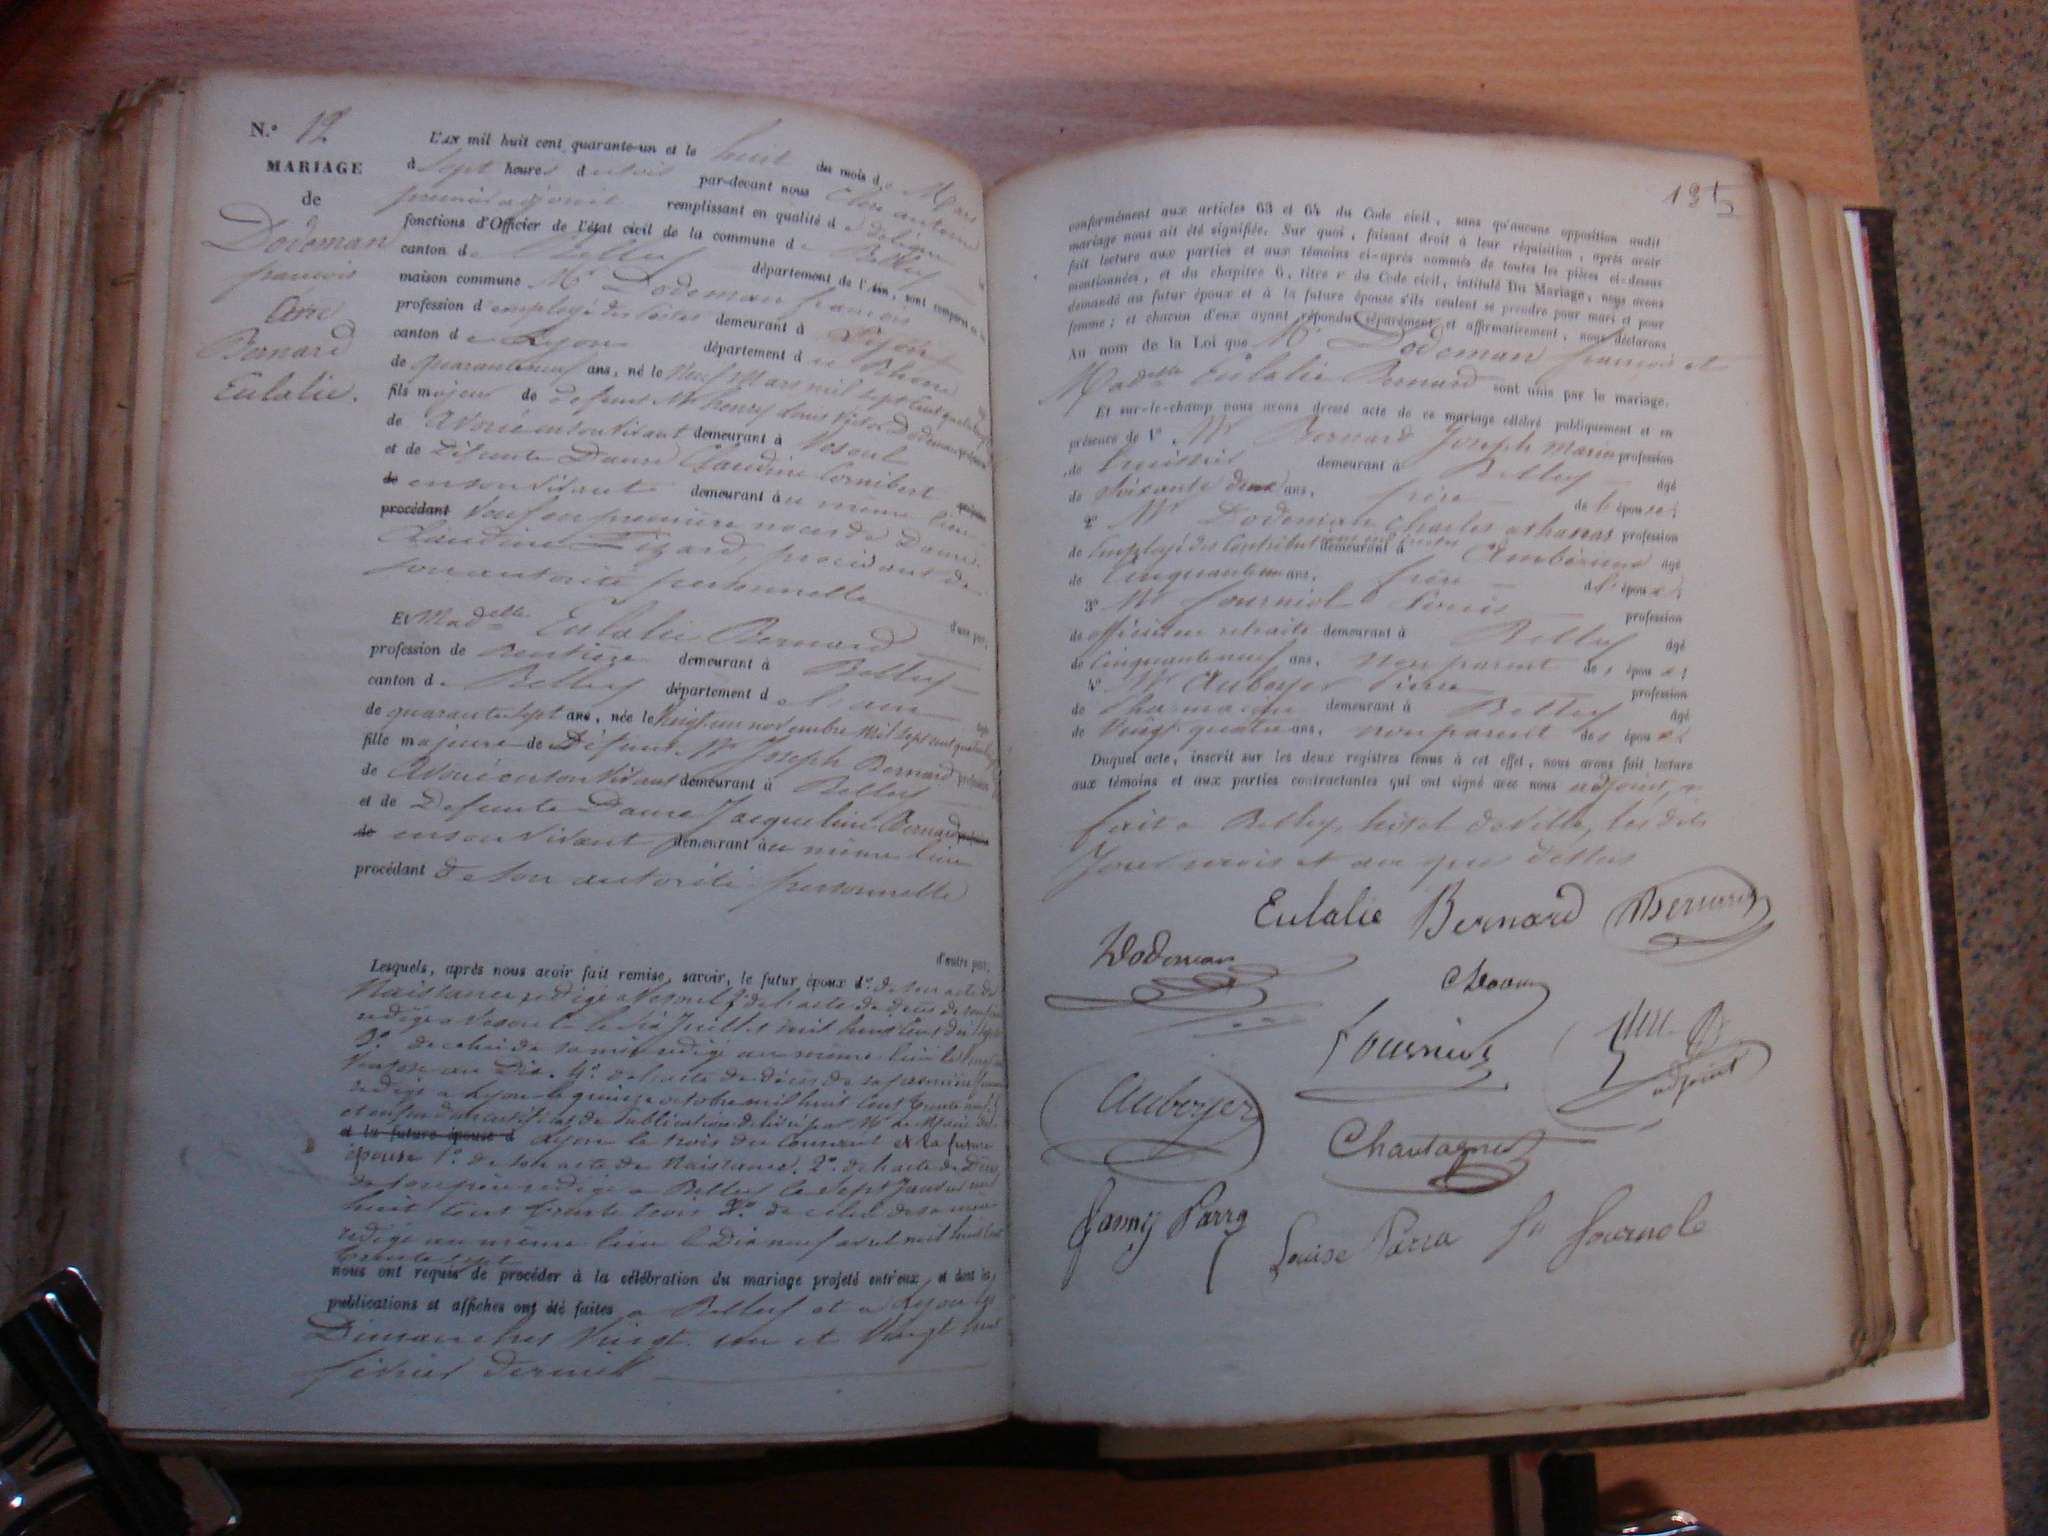 N.º 12
MARIAGE
de
Dodeman
francois
Avec
Bernard
Eulalie.
L'AN mil huit cent quarante-un et le huit du mois de Mars
à sept heures du soir par-devant nous
premier adjoint remplissant en qualité de délégué
fonctions d'Officier de l'état civil de la commune de Belley
canton de Belley département de l'Ain, sont comparus en la
maison commune Mr Dodeman francois
profession d'employé des Postes demeurant à Lyon
canton de Lyon département du Rhone
de quarante neuf ans, né le neuf Mars mil sept cent quatre
fils majeur de défunt Mr henry Dodeman
de Avoué en son vivant demeurant à Vesoul
et de défunte Dame Claudine Cornibert
de en son vivant demeurant au même lieu
procédant Veuf en première noces de Dame
Claudine procédant de
son autorité personnelle
d'une part,
Et Madelle Eulalie Bernard
profession de Rentière demeurant à Belley
canton de Belley département de l'ain
de quarante sept ans, née le Vingt un novembre mil sept cent quatre
fille majeure de Défunt Mr Joseph Bernard profession
de Avoué en son vivant demeurant à Belley
et de Defunte Dame Jacqueline Bernard
de en son vivant demeurant au même lieu
procédant de son autorité personnelle
d'autre part,
Lesquels, après nous avoir fait remise, savoir, le futur époux 1º. de son acte de
Naissance rédigé a Vesoul 2º de l'acte de décès de son
rédigé a Vesoul le six Juillet mil huit cent dix sept
3º de celui de sa mère rédigé au même lieu le
Ventose an Dix. 4º. de l'acte de décès de sa première femme
rédigé a Lyon le quinze octobre mil huit cent trente neuf
et enfin du certificat de Publication délivré par Mr le Maire de
et la future épouse d Lyon le trois du courant et la future
épouse 1º. de son acte de Naissance. 2º. de l'acte de Décès
de son père rédigé a Belley le sept Janvier mil
huit cent trente trois 3º. de celui de sa mère
rédigé au même lieu le Dix neuf avril mil huit cent
trente sept
nous ont requis de procéder à la célébration du mariage projeté entr'eux, et dont les
publications et affiches ont été faites a Belley et a Lyon les
Dimanches Vingt un et Vingt huit
février dernier
135
conformément aux articles 63 et 64 du Code civil, sans qu'aucune opposition audit
mariage nous ait été signifiée. Sur quoi, faisant droit à leur réquisition, après avoir
fait lecture aux parties et aux témoins ci-après nommés de toutes les pièces ci-dessus
mentionnées, et du chapitre 6, titre v du Code civil, intitulé Du Mariage, nous avons
demandé au futur époux et à la future épouse s'ils veulent se prendre pour mari et pour
femme; et chacun d'eux ayant répondu séparément et affirmativement, nous déclarons
Au nom de la Loi que Mr Dodeman francois et
Madelle Eulalie Bernard sont unis par le mariage.
Et sur-le-champ nous avons dressé acte de ce mariage célébré publiquement et en
présence de 1º Mr Bernard Joseph Marie profession
de huissier demeurant à Belley âgé
de soixante deux ans, frère de l'épouse;
2º Mr Dodeman Charles athanas profession
de Employé des Contributions indirectes demeurant à Ambérieux âgé
de Cinquante un ans, frère de l'époux;
3º Mr fourniol Louis profession
de officier en retraite demeurant à Belley âgé
de Cinquante neuf ans, non parent des époux;
4º Mr Auberger Pierre profession
de Pharmacien demeurant à Belley âgé
de Vingt quatre ans, non parent des époux;
Duquel acte, inscrit sur les deux registres tenus à cet effet, nous avons fait lecture
aux témoins et aux parties contractantes qui ont signé avec nous adjoint,
fait a Belley, hôtel de Ville, les dits
Jour mois et an que dessus
Eulalie Bernard Bernard
Dodeman
Fourniol
adjoint
Auberger
Chantagne
Fanny Parra
Louise Parra